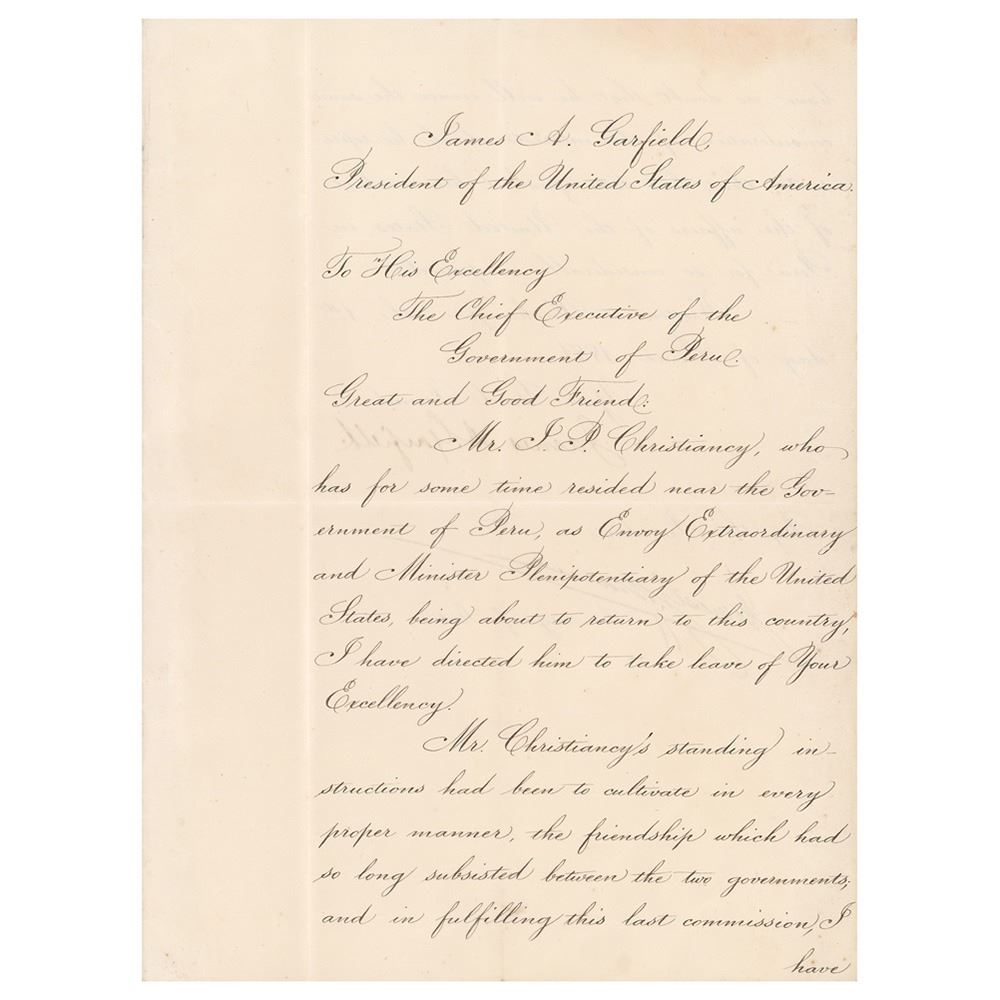 James A. Garfield,
President of the United States of America.
To His Excellency
The Chief Executive of the
Government of Peru.
Great and Good Friend:
Mr. I. P. Christiancy, who
has for some time resided near the Gov-
ernment of Peru, as Envoy Extraordinary
and Minister Plenipotentiary of the United
States, being about to return to this country,
I have directed him to take leave of Your
Excellency.
Mr. Christiancy's standing in-
structions had been to cultivate in every
proper manner, the friendship which had
so long subsisted between the two governments;
and in fulfilling this last commission, I
have